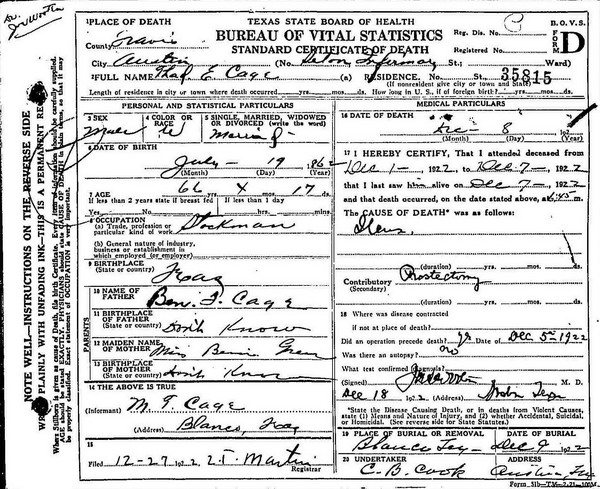 1 PLACE OF DEATH
TEXAS STATE BOARD OF HEALTH
BUREAU OF VITAL STATISTICS
STANDARD CERTIFICATE OF DEATH
B.O.V.S.
FORM D
Reg. Dis. No. C
Registered No.
County Travis
City Austin (No. Seton Infirmary St., Ward)
2 FULL NAME Thad E. Cage (a) RESIDENCE. No. St.,
35815
(If nonresident give city or town and State)
Length of residence in city or town where death occurred yrs. mos. ds. How long in U. S., if of foreign birth? yrs. mos. ds.
PERSONAL AND STATISTICAL PARTICULARS
3 SEX Male
4 COLOR OR RACE W
5 SINGLE, MARRIED, WIDOWED OR DIVORCED (write the word)
Married
6 DATE OF BIRTH
July 19 1862
(Month) (Day) (Year)
7 AGE
If less than 2 years state if breast fed If less than 1 day
Yes No hrs. min.
8 OCCUPATION
(a) Trade, profession or particular kind of work Stockman
(b) General nature of industry, business or establishment in which employed (or employer)
9 BIRTHPLACE
(State or country) Texas
PARENTS
10 NAME OF FATHER Ben. F. Cage
11 BIRTHPLACE OF FATHER (State or country) Don't Know
12 MAIDEN NAME OF MOTHER Miss
13 BIRTHPLACE OF MOTHER (State or country) Don't Know
14 THE ABOVE IS TRUE
Informant M. T. Cage
(Address) Blanco, Tex
15
Filed 12-27 1922 Martin
Registrar
MEDICAL PARTICULARS
16 DATE OF DEATH
Dec 8 192
(Month) (Day) (Year)
17 I HEREBY CERTIFY, That I attended deceased
from Dec 1 1922, to Dec 7 1922
that I last saw him alive on Dec 7 1922
and that death occurred, on the date stated above, at m.
The CAUSE OF DEATH* was as follows:
Ileus
(duration) yrs. mos. ds.
Contributory (Secondary)
(duration) yrs. mos. ds.
18 Where was disease contracted
if not at place of death?
Did an operation precede death? yes Dec 5th 1922
Was there an autopsy? no
What test confirmed diagnosis?
(Signed) M. D.
Dec 18 1922 (Address)
*State the Disease Causing Death, or in deaths from Violent Causes, state (1) Means and Nature of Injury, and (2) whether Accidental, Suicidal, or Homicidal. (See reverse side for State Statutes.)
19 PLACE OF BURIAL OR REMOVAL DATE OF BURIAL
Blanco Tex Dec 9 1922
20 UNDERTAKER ADDRESS
C. B. Cook Austin Tex
NOTE WELL—INSTRUCTIONS ON THE REVERSE SIDE
WRITE PLAINLY WITH UNFADING INK—THIS IS A PERMANENT RE